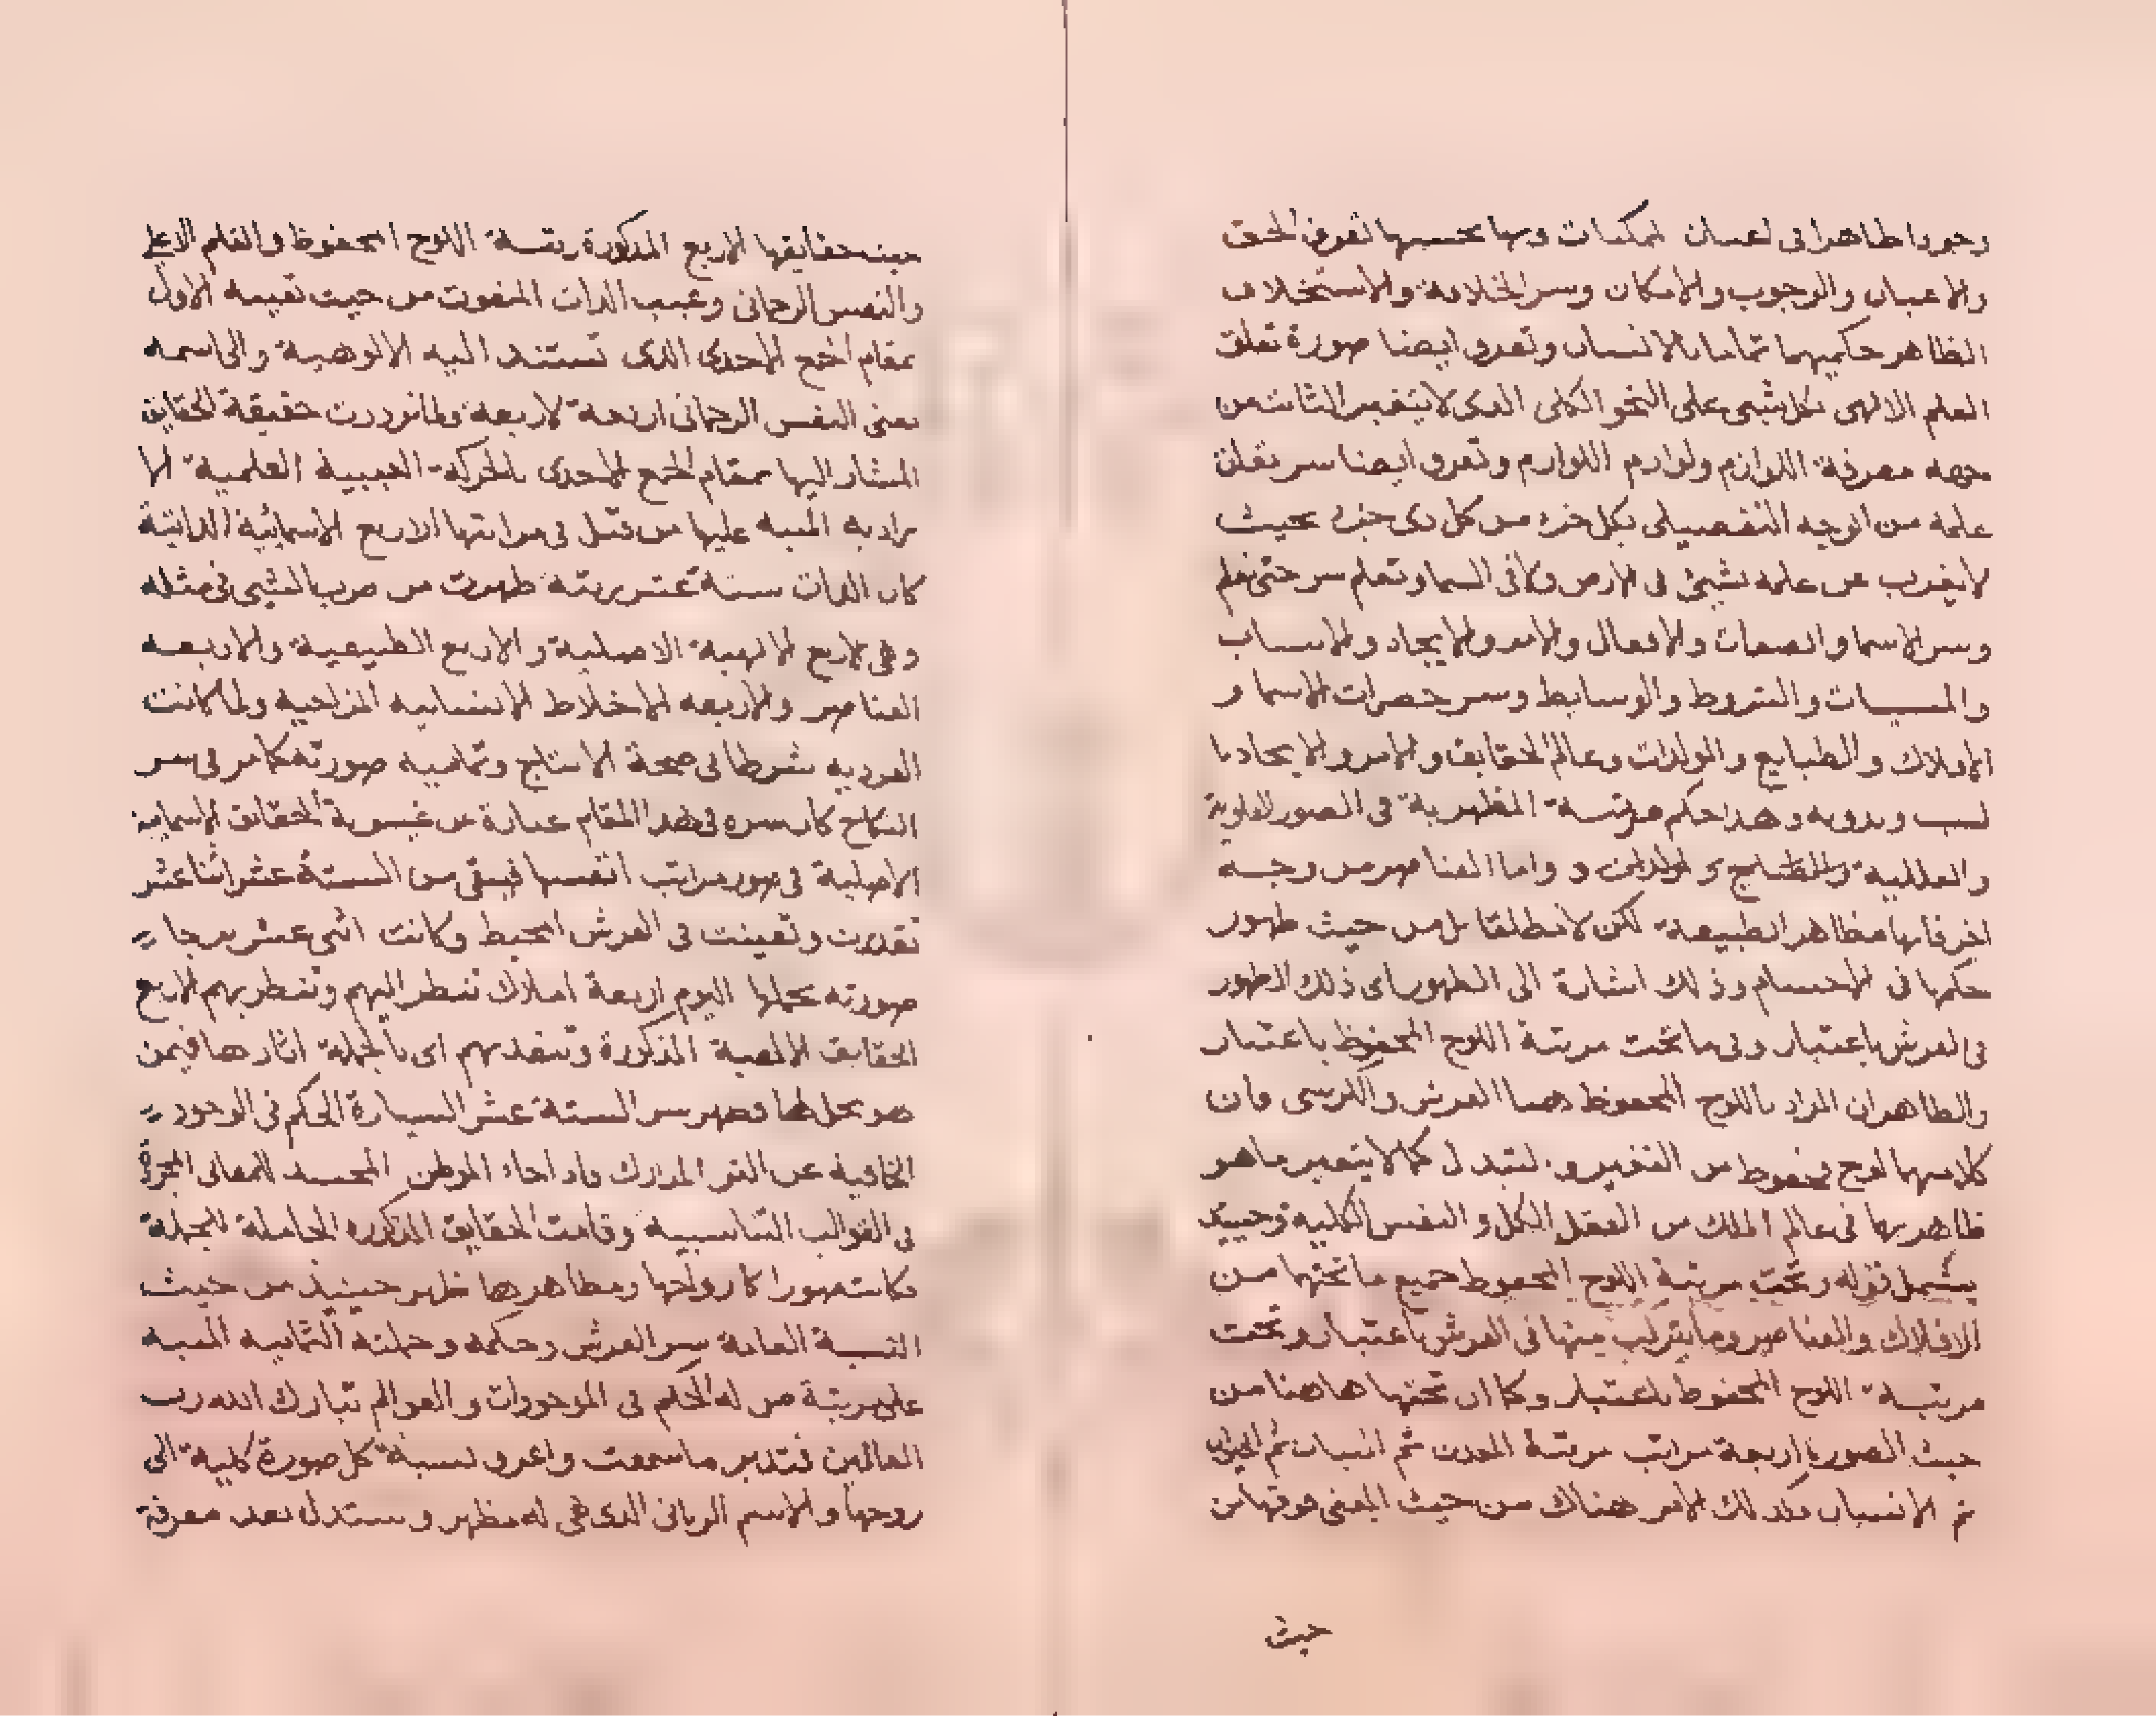 وجودا ظاهرا فى اعيان الممكنات وبها بحسبها تعرف الحق
والاعيان والوجوب والامكان وسر الخلافة والاستخلاف
الظاهر حكميهما تماما بالانسان وتعرف ايضا صورة تعلق
العلم الالهى بكل شىء على النحو الكلى الذى لا يتغير الثابت من
جهة معرفة اللوازم ولوازم اللوازم وتعرف ايضا سر تعلق
علمه من الوجه التفصيلى بكل جزء من كل ذى جزء بحيث
لا يعزب عن علمه شىء فى الارض ولا فى السما وتعلم سر حتى نعلم
وسر الاسما والصفات والافعال والامر والايجاد والاسباب
والمسببات والشروط والوسايط وسر حضرات الاسما و
الافلاك والطبايع والمولدات وعالم الحقايق والامر والايجاد با
وبدونه وهذا حكم مرتبة المظهرية فى الصور العلوية
واما العناصر من وجه
اخر فانها مظاهر الطبيعة لكن لا مطلقا بل من حيث ظهور
حكمها فى الاجسام وذلك اشارة الى الظهور اى ذلك الظهور
فى العرش باعتبار وفى ما تحت مرتبة اللوح المحفوظ باعتبار
والظاهر ان المراد باللوح المحفوظ هما العرش والكرسى فان
كلا منهما لوح محفوظ من التغير والتبدل كما لا يتغير ما هو
ظاهر بها فى عالم الملك من العقل الكل والنفس الكلية وحينئذ
يشمل قوله وتحت مرتبة اللوح المحفوظ جميع ما تحتها من
الافلاك والعناصر وما يتركب منها فى العرش باعتبار وتحت
مرتبة اللوح المحفوظ باعتبار وكما ان تحتها هاهنا من
حيث الصورة اربعة مراتب مرتبة المعدن ثم النبات ثم الحيوان
ثم الانسان فكذلك الامر هناك من حيث المعنى فوقها من
حيث
حيث حقايقها الاربع المذكورة رتبة اللوح المحفوظ والقلم الاعلى
والنفس الرحمانى وغيب الذات المنعوت من حيث تعينه الاول
بمقام الجمع الاحدى الذى تستند اليه الالوهية والى اسمه
يعنى النفس الرحمانى اربعة لاربعة ولما ترددت حقيقة الحقايق
المشار اليها بمقام الجمع الاحدى بالحركة الغيبية العلمية الا
رادية المنبه عليها من قبل فى مراتبها الاربع الاسمائية الذاتية
كان الذات ستة عشر رتبة ظهرت من ضرب الشىء فى مثله
وهى الاربع الالهية الاصلية والاربع الطبيعية والاربعه
العناصر والاربعه الاخلاط الانسانيه المزاجيه ولما كانت
الفرديه شرطا فى صحة الانتاج وتمامية صورته كما مر فى سر
النكاح كان سره فى هذا المقام عبارة عن غيبوبة الحقايق الاسمائية
الاصلية فى صور مراتب انفسها فبقى من الستة عشر اثنا عشر
تقدرت وتعينت فى العرش المحيط وكانت اثنى عشر برجا
صورته يحملها اليوم اربعة املاك تنظر اليهم وتنظر بهم الاربع
الحقايق الالهية المذكورة وتنفذ بهم اى بالجملة اثارها فيمن
هو محل لها فظهر سر الستة عشر السيارة الحكم فى الوجود
الخافيه عن اكثر المدارك واذا جاء الموطن المجسد للمعانى المجردة
فى القوالب التناسبية وقامت الحقايق المذكوره الحاملة للجملة
فكانت صورا كارواحها ومظاهرها ظهر حينيذ من حيث
النسبة العامة سر العرش وحكمه وحملته الثمانيه المنبه
على مرتبة من له الحكم فى الموجودات والعوالم تبارك الله رب
العالمين فتدبر ما سمعت واعرف نسبة كل صورة كلية الى
روحها والاسم الربانى الذى هى له مظهر وستدل بعد معرفة